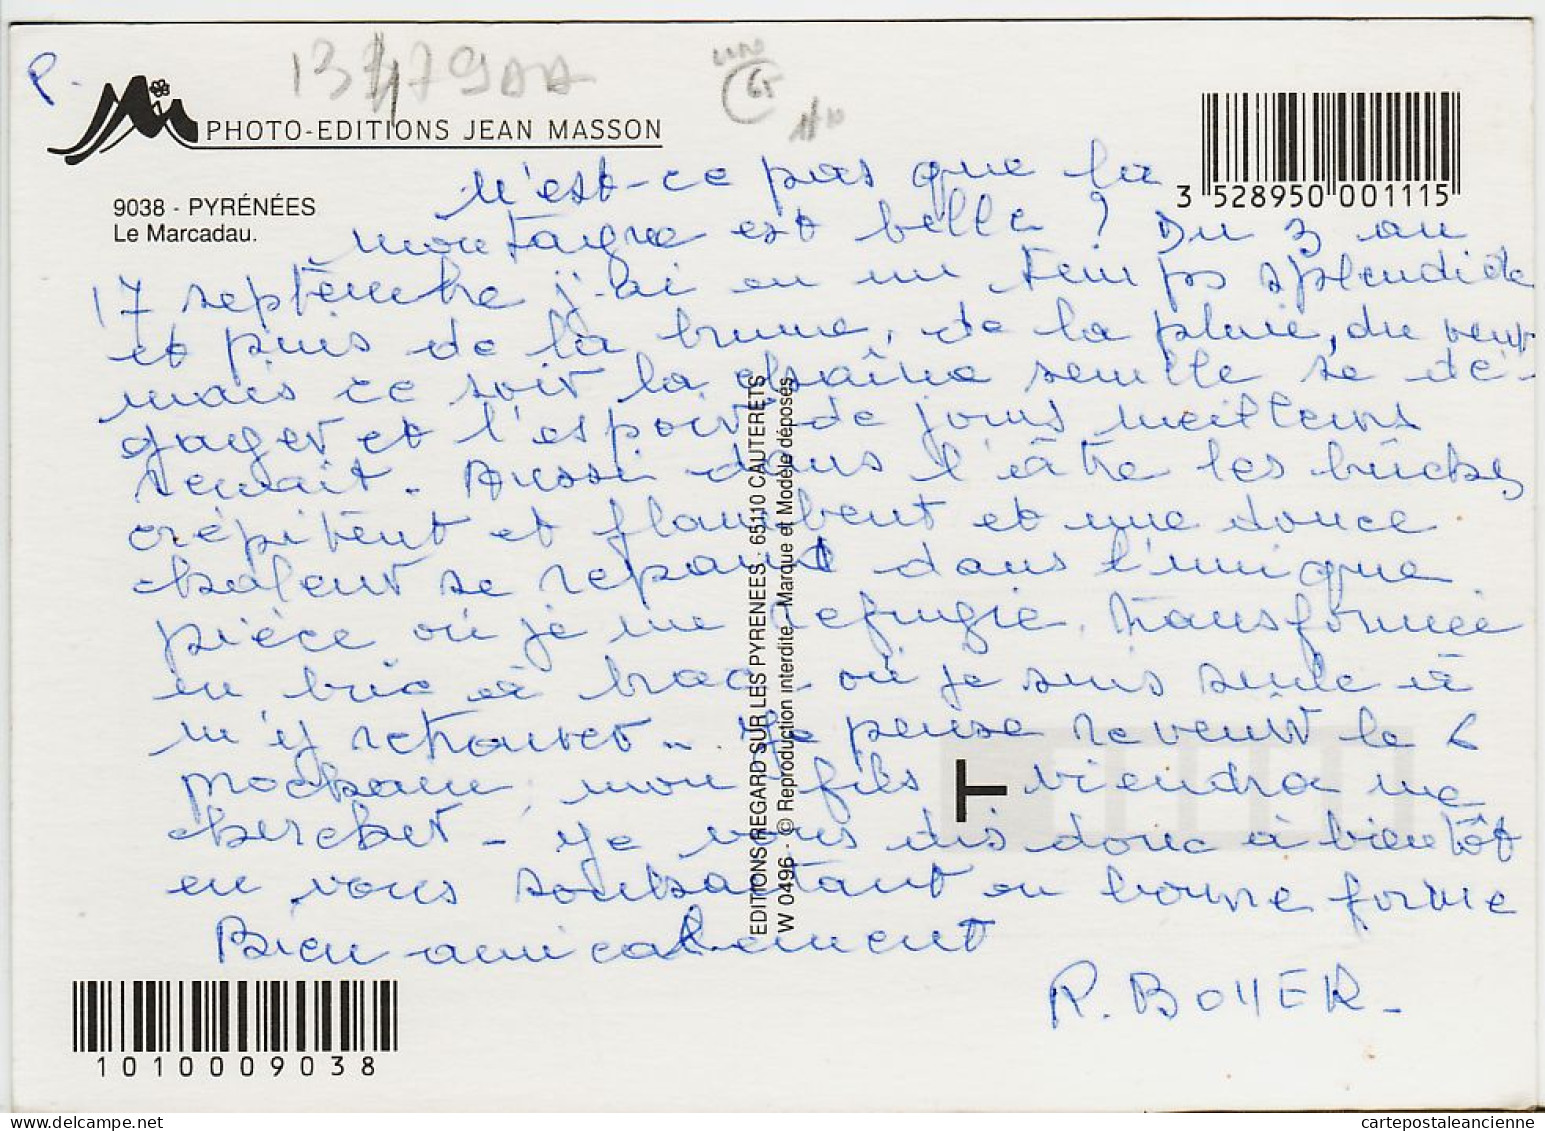 P.
PHOTO-EDITIONS JEAN MASSON
9038 - PYRÉNÉES
Le Marcadau.
3 528950 001115
N'est-ce pas que la
montagne est belle ? Du 3 au
17 septembre j'ai eu un temps splendide
et puis de la brume, de la pluie, du vent
mais ce soir la chaîne semble se dé-
gager et l'espoir de jours meilleurs
renait. Aussi dans l'âtre les bûches
crépitent et flambent et une douce
chaleur se répand dans l'unique
pièce où je me réfugie, transformée
en bric à brac où je suis seule à
m'y retrouver.. Je pense revenir le 6
prochain, mon fils viendra me
chercher - Je vous dis donc à bientôt
en vous souhaitant en bonne forme
Bien amicalement
R. BOYER -
EDITIONS REGARD SUR LES PYRENEES - 65110 CAUTERETS
W 0496 - © Reproduction interdite - Marque et Modèle déposés
1010009038
cartepostaleancienne.com